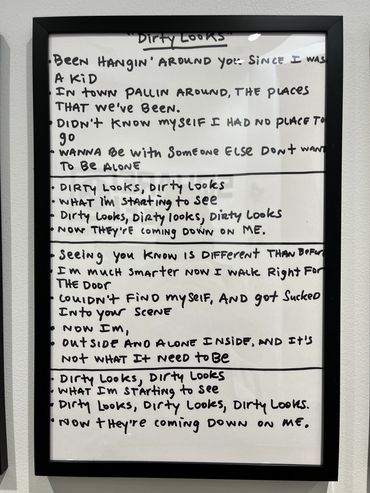 "Dirty Looks"
• Been hangin' around you since I was
a kid
• In town pallin around, the places
that we've been.
• Didn't know myself I had no place to
go
• Wanna be with someone else dont want
to be alone
• Dirty looks, dirty looks
• What I'm starting to see
• Dirty looks, dirty looks, dirty looks
• Now they're coming down on me.
• Seeing you know is different than before
• I'm much smarter now I walk right for
the door
• Couldn't find myself, and got sucked
into your scene
• Now Im,
• Outside and alone inside, and it's
not what it need to be
• Dirty looks, dirty looks
• What I'm starting to see
• Dirty looks, dirty looks, dirty looks.
• Now they're coming down on me.